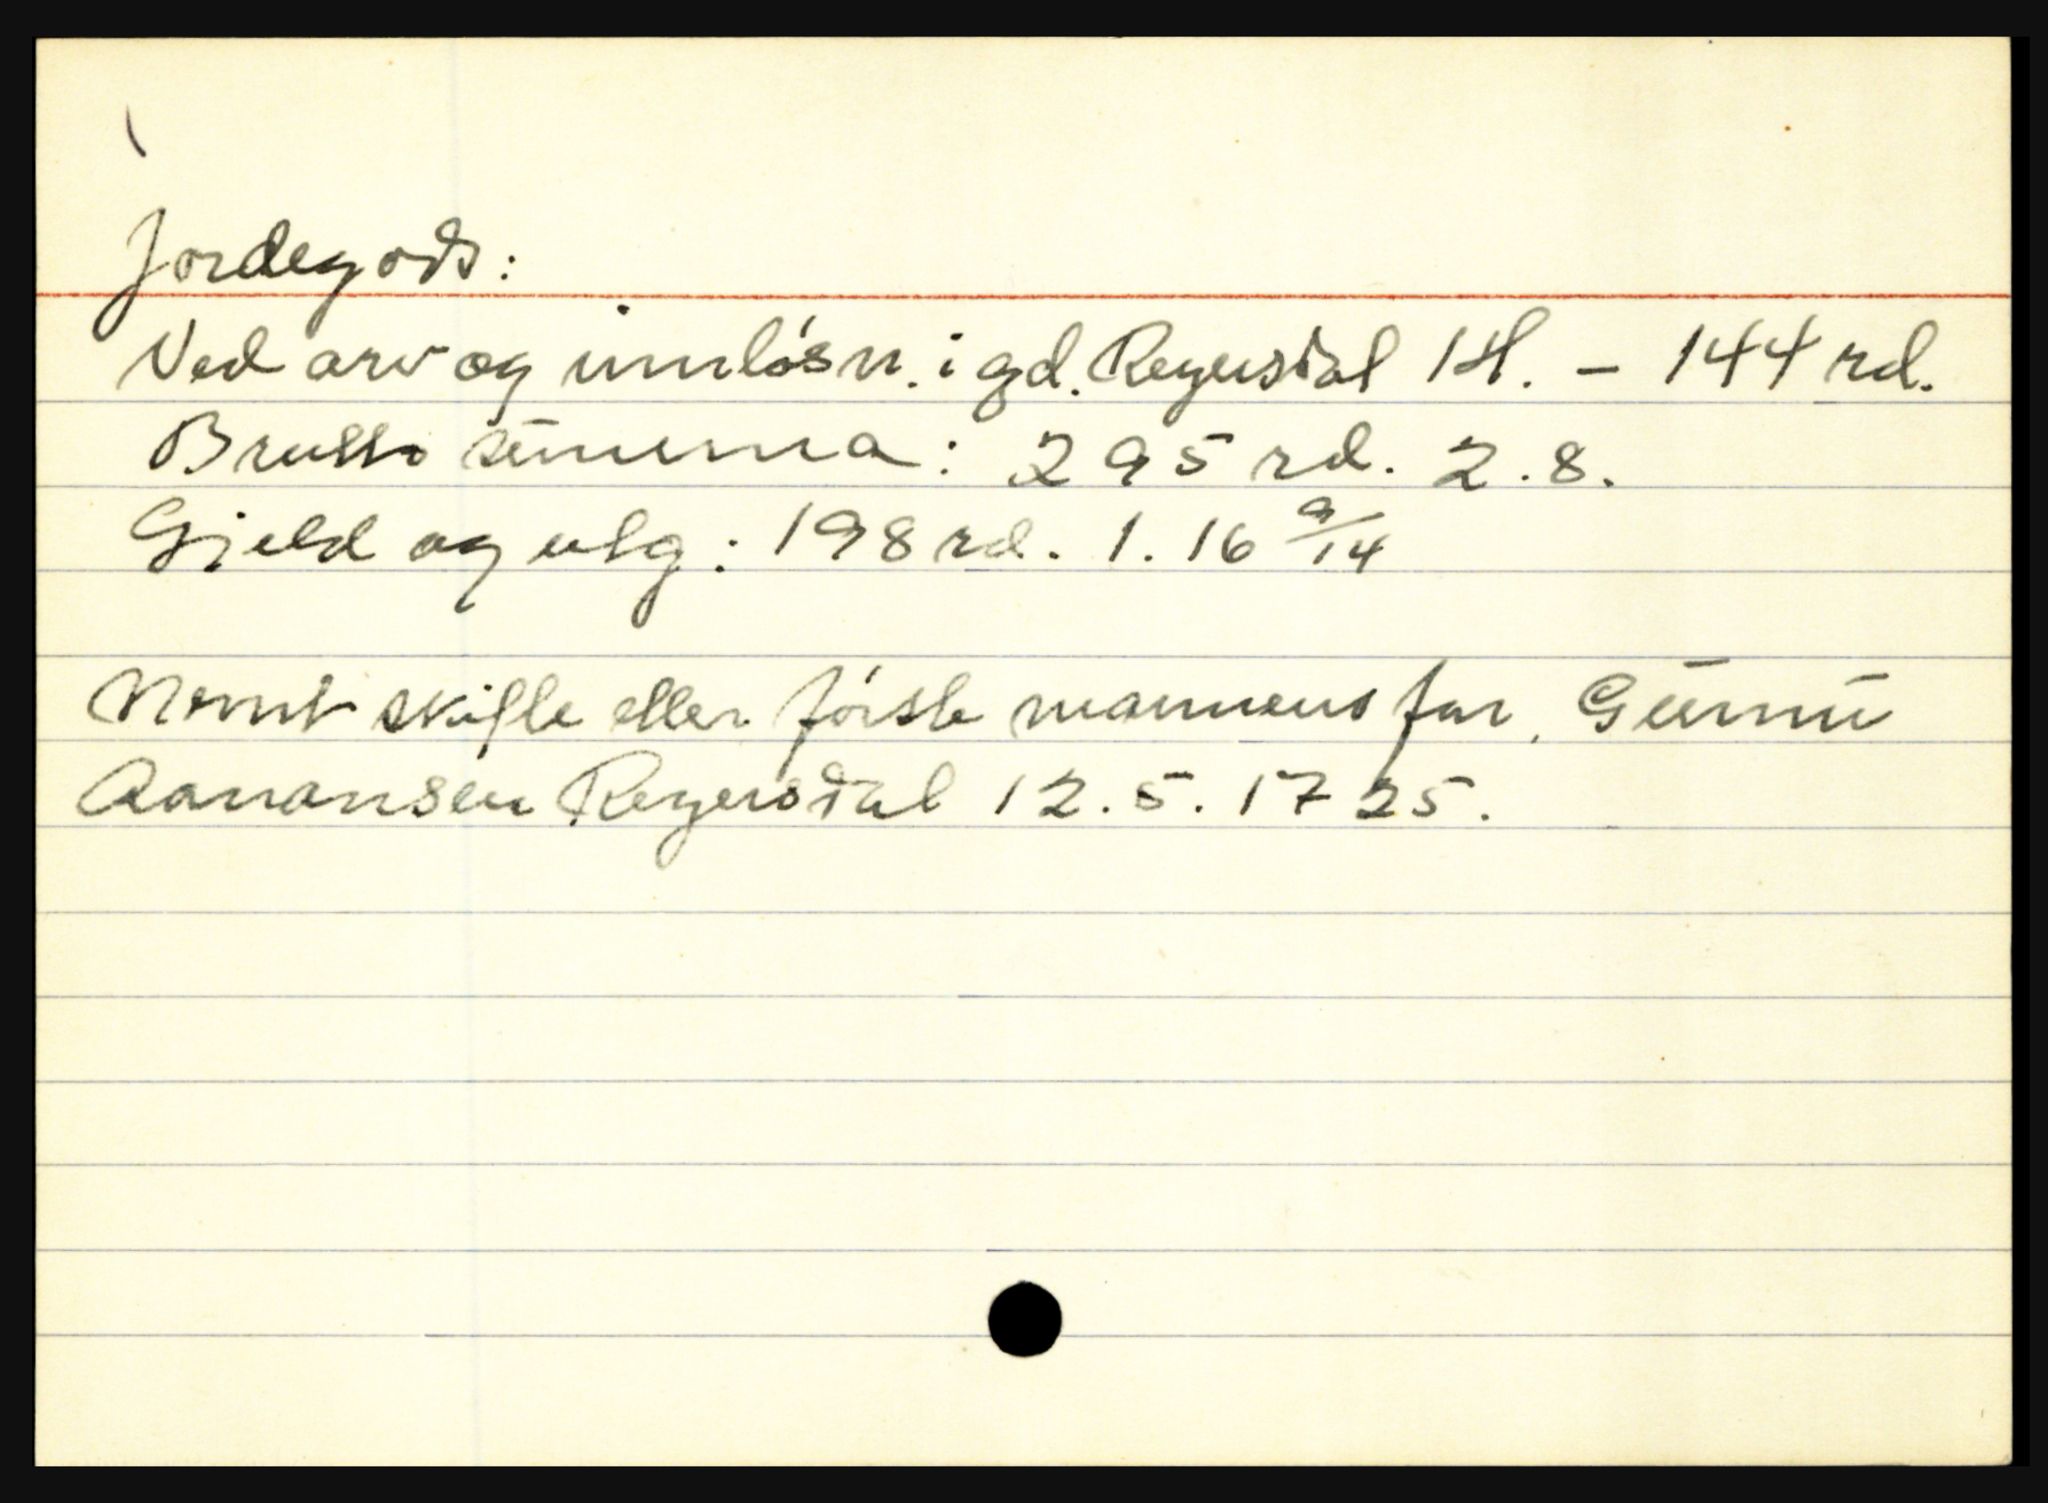 Jordegods:
Ved arv og innløsn. i gd. Regevstal 1 H. - 144 rd.
Brutto summa: 295 rd. 2.8.
Gjeld og utg: 198 rd. 1. 16 9/14
Nevnt skifte etter første mannens far, Gunnu
Aanansen Regevstal 12.5.1725.